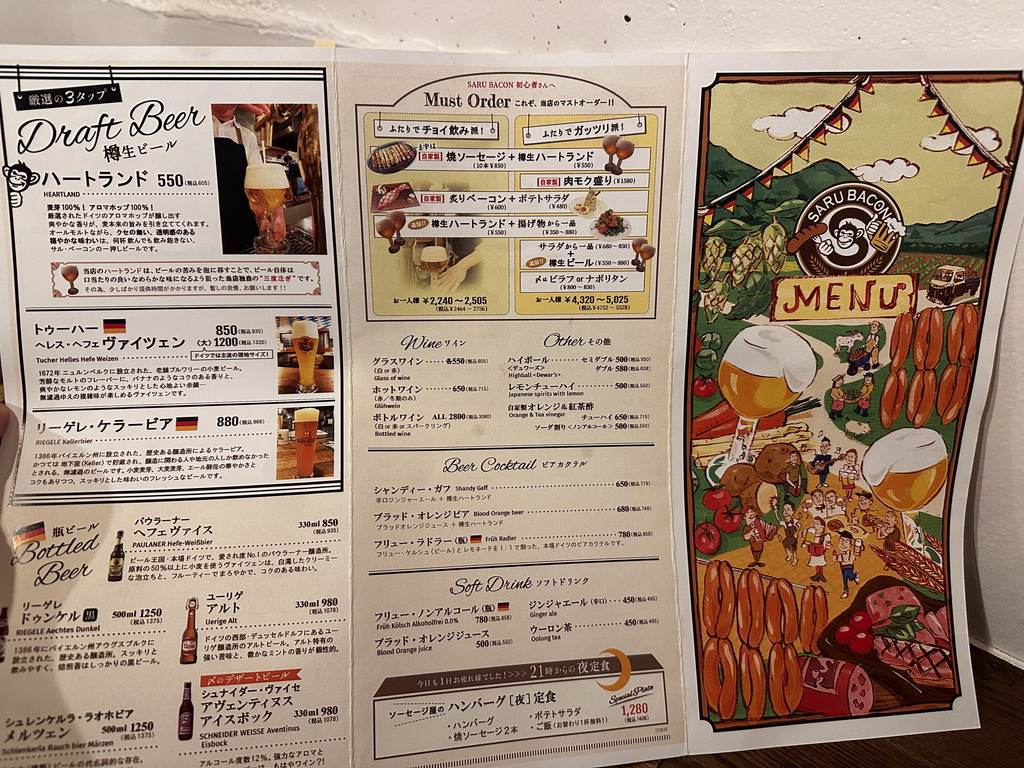 厳選の3タップ
Draft Beer
樽生ビール
ハートランド 550(税込605)
HEARTLAND
麦芽100%！アロマホップ100%！
厳選されたドイツのアロマホップが醸し出す
爽やかな香りが、麦本来の旨みを引き立ててくれます。
オールモルトながら、クセの無い、透明感のある
穏やかな味わいは、何杯飲んでも飲み飽きない、
サル・ベーコンの一押しビールです。
当店のハートランドは、ビールの苦みを泡に移すことで、ビール自体は
口当たりの良いなめらかな味になるよう狙った当店独自の"三度注ぎ"です。
その為、少しばかり提供時間がかかりますが、暫しの我慢、お願いします！！
トゥーハー 850(税込935)
ヘレス・ヘフェヴァイツェン (大)1200(税込1320)
ドイツでは主流の現地サイズ！
Tucher Helles Hefe Weizen
1672年ニュルンベルクに設立された、老舗ブルワリーの小麦ビール。
芳醇なモルトのフレーバーに、バナナのようなコクのある香りと、
爽やかなレモンのようなスッキリとした心地よい余韻…
無濾過ゆえの複雑味が楽しめるヴァイツェンです。
リーゲレ・ケラービア 880(税込968)
RIEGELE Kellerbier
1386年バイエルン州に設立された、歴史ある醸造所によるケラービア。
かつては 地下室(Keller)で貯蔵され、醸造に関わる人や地元の人しか飲めなかった
とされる、無濾過のビールです。小麦麦芽、大麦麦芽、エール酵母の華やかさと
コクもありつつ、スッキリとした味わいのフレッシュなビールです。
瓶ビール
Bottled
Beer
パウラーナー
ヘフェヴァイス 330ml 850(税込935)
PAULANER Hefe-Weißbier
ビール王国・本場ドイツで、愛され度No.1のパウラーナー醸造所。
原料の50%以上に小麦を使うヴァイツェンは、白濁したクリーミー
な泡立ちと、フルーティーでまろやかで、コクのある味わい。
リーゲレ
ドゥンケル 黒 500ml 1250(税込1375)
RIEGELE Aechtes Dunkel
1386年にバイエルン州アウグスブルクに
設立された、歴史ある醸造所。スッキリと
飲みやすく、焙煎香はしっかりの黒ビール。
ユーリゲ
アルト 330ml 980(税込1078)
Uerige Alt
ドイツの西部・デュッセルドルフにあるユー
リゲ醸造所のアルトビール。アルト特有の
強い苦味と、微かなミントの香りが個性的。
シュレンケルラ・ラオホビア
メルツェン 500ml 1250(税込1375)
Schlenkerla Rauch bier Märzen
ビールの代名詞的な存在。
〆のデザートビール
シュナイダー・ヴァイセ
アヴェンティヌス
アイスボック 330ml 980(税込1078)
SCHNEIDER WEISSE Aventinus
Eisbock
アルコール度数12%。強力なアロマと
SARU BACON 初心者さんへ
Must Order これぞ、当店のマストオーダー！！
ふたりでチョイ飲み派！
まずは
【自家製】焼ソーセージ＋樽生ハートランド
(10本¥850) (¥550)
【自家製】炙りベーコン＋ポテトサラダ
(¥600) (¥480)
追加!! 樽生ハートランド＋揚げ物から一品
(¥550) (¥350～880)
お一人様 ¥2,240～2,505
(税込¥2464～2756)
ふたりでガッツリ派！
【自家製】肉モク盛り(¥1580)
サラダから一品(¥680～850)
＋
追加!! 樽生ビール(¥550～880)
〆はピラフ or ナポリタン
(¥800～850)
お一人様 ¥4,320～5,025
(税込¥4752～5528)
Wine ワイン
グラスワイン 各550(税込605)
(白 or 赤)
Glass of wine
ホットワイン 650(税込715)
(赤／冬期のみ)
Glühwein
ボトルワイン ALL 2800(税込3080)
(白 or 赤 or スパークリング)
Bottled wine
Other その他
ハイボール セミダブル 500(税込550)
<デュワーズ> ダブル 580(税込638)
Highball <Dewar's>
レモンチューハイ 500(税込550)
Japanese spirits with lemon
自家製オレンジ＆紅茶酢
Orange & Tea vinegar チューハイ 650(税込715)
ソーダ割り<ノンアルコール> 500(税込550)
Beer Cocktail ビアカクテル
シャンディー・ガフ Shandy Gaff 650(税込715)
辛口ジンジャーエール ＋ 樽生ハートランド
ブラッド・オレンジビア Blood Orange beer 680(税込748)
ブラッドオレンジジュース ＋ 樽生ハートランド
フリュー・ラドラー(瓶) Früh Radler 780(税込858)
フリュー・ケルシュ(ビール)とレモネードを1：1で割った、本場ドイツのビアカクテルです。
Soft Drink ソフトドリンク
フリュー・ノンアルコール(瓶)
Früh Kölsch Alkoholfrei 0.0% 780(税込858)
ブラッド・オレンジジュース
Blood Orange juice 500(税込550)
ジンジャエール(辛口) 450(税込495)
Ginger ale
ウーロン茶 450(税込495)
Oolong tea
今日も1日お疲れ様でした！>>> 21時からの夜定食
ソーセージ屋のハンバーグ[夜]定食
・ハンバーグ
・焼ソーセージ2本
・ポテトサラダ
・ご飯(お替わり1杯無料！)
Special Plate
1,280
(税込1408)
SARU BACON
MENU